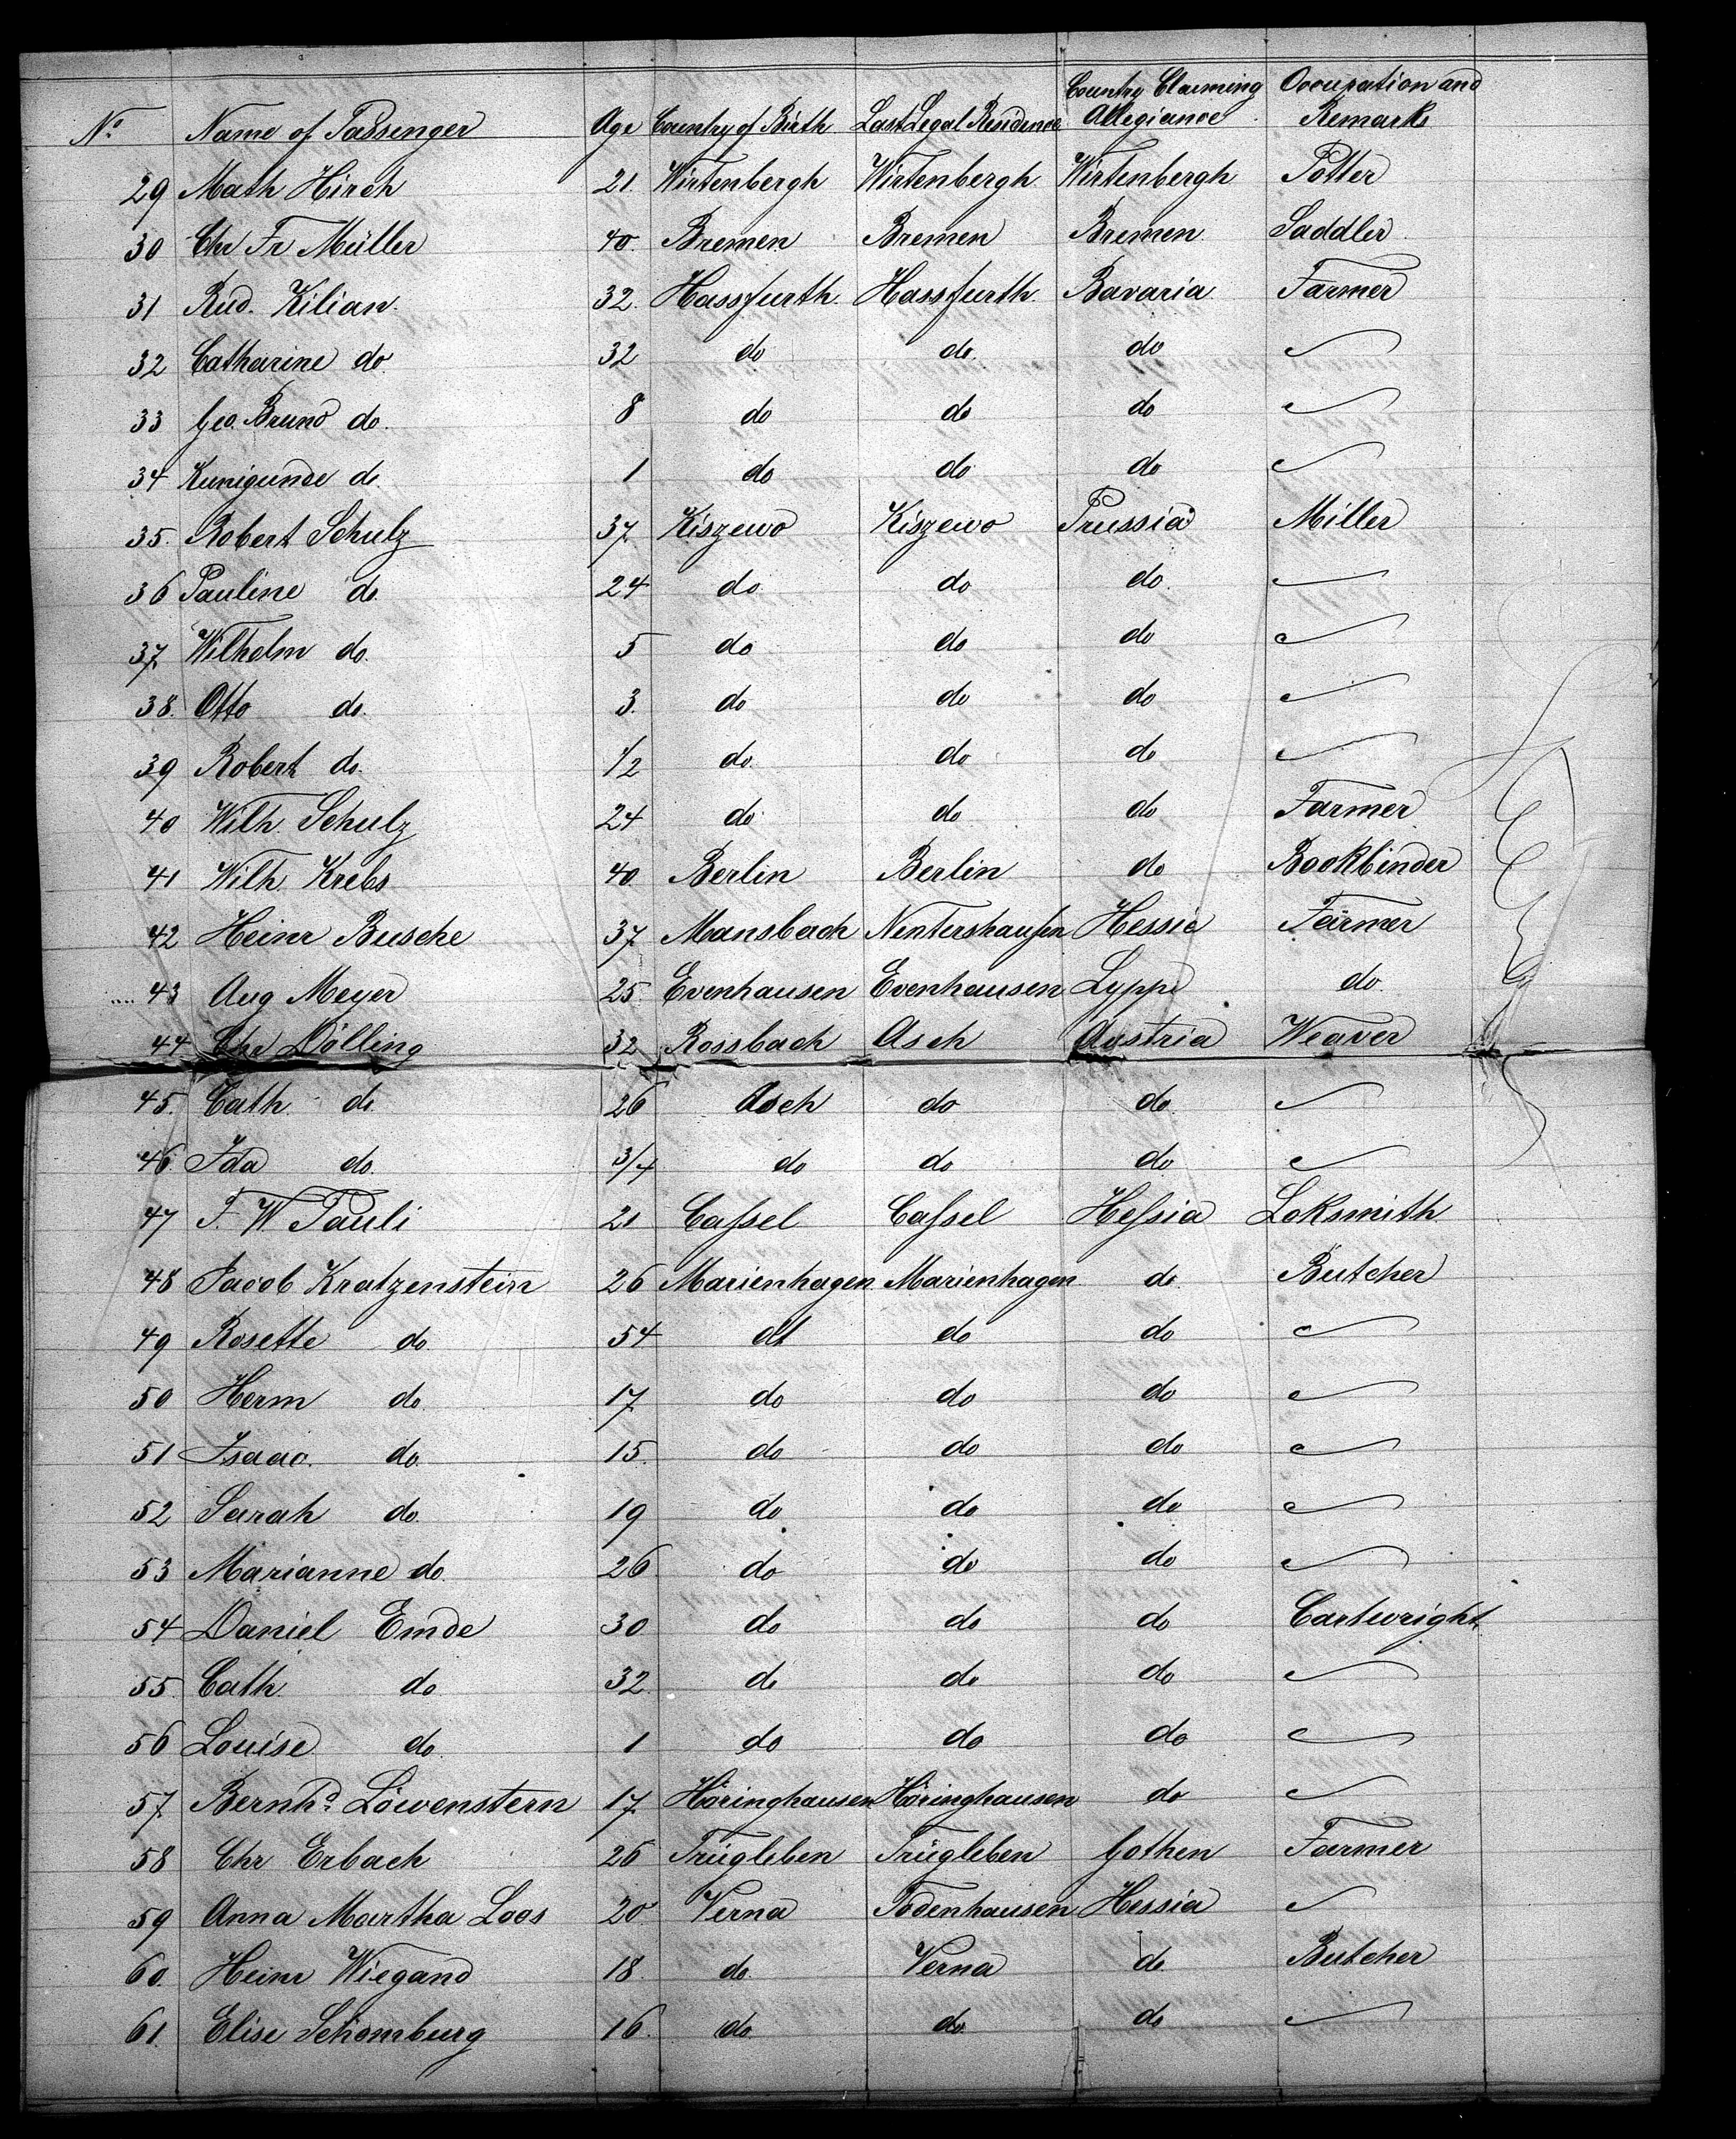 No Name of Passenger Age Country of Birth Last Legal Residence Country Claiming Allegiance Occupation and Remark
29 Math Hirch 21. Wirtenbergh Wirtenbergh Wirtenbergh Potter
30 Chr Fr Müller 40. Bremen Bremen Bremen Saddler
31 Rud. Kilian. 32 Hassfurth Hassfurth Bavaria Farmer
32 Catharine do 32 do do do
33 Geo. Bruno do. 8 do do do
34 Kunigunde do 1 do do do
35. Robert Schulz 37 Kiszewo Kiszewo Prussia Miller
36 Pauline do 24 do do do
37 Wilhelm do. 5 do do do
38. Otto do. 3. do do do
39 Robert do. 1/2 do do do
40 Wilh. Schulz 24 do do do Farmer
41 Wilh. Krebs 40 Berlin Berlin do Bookbinder
42 Heinr Busche 37 Mansbach Nentershausen Hessia Farmer
43 Aug Meyer 25 Evenhausen Evenhausen Lyppe do
44 Chr Dölling 32 Rossbach Asch Austria Weaver
45. Cath do 26 Asch do do
46. Ida do 3/4 do do do
47 F. W Pauli 21 Cassel Cassel Hessia Loksmith
48 Jacob Kratzenstein 26 Marienhagen Marienhagen do Butcher
49 Rosette do 54 do do do
50 Herm do 17 do do do
51 Isaac do 15. do do do
52 Sarah do 19 do do do
53 Marianne do 26 do do do
54 Daniel Emde 30 do do do Cartwright
55. Cath. do 32. do do do
56 Louise do 1 do do do
57 Bernhd. Löwenstern 17 Höringhausen Höringhausen do
58 Chr Erbach 26 Trügleben Trügleben Gothen Farmer
59 Anna Martha Loos 20 Verna Todenhausen Hessia
60. Heinr Wiegand 18. do Verna do Butcher
61. Elise Schomburg 16. do do do